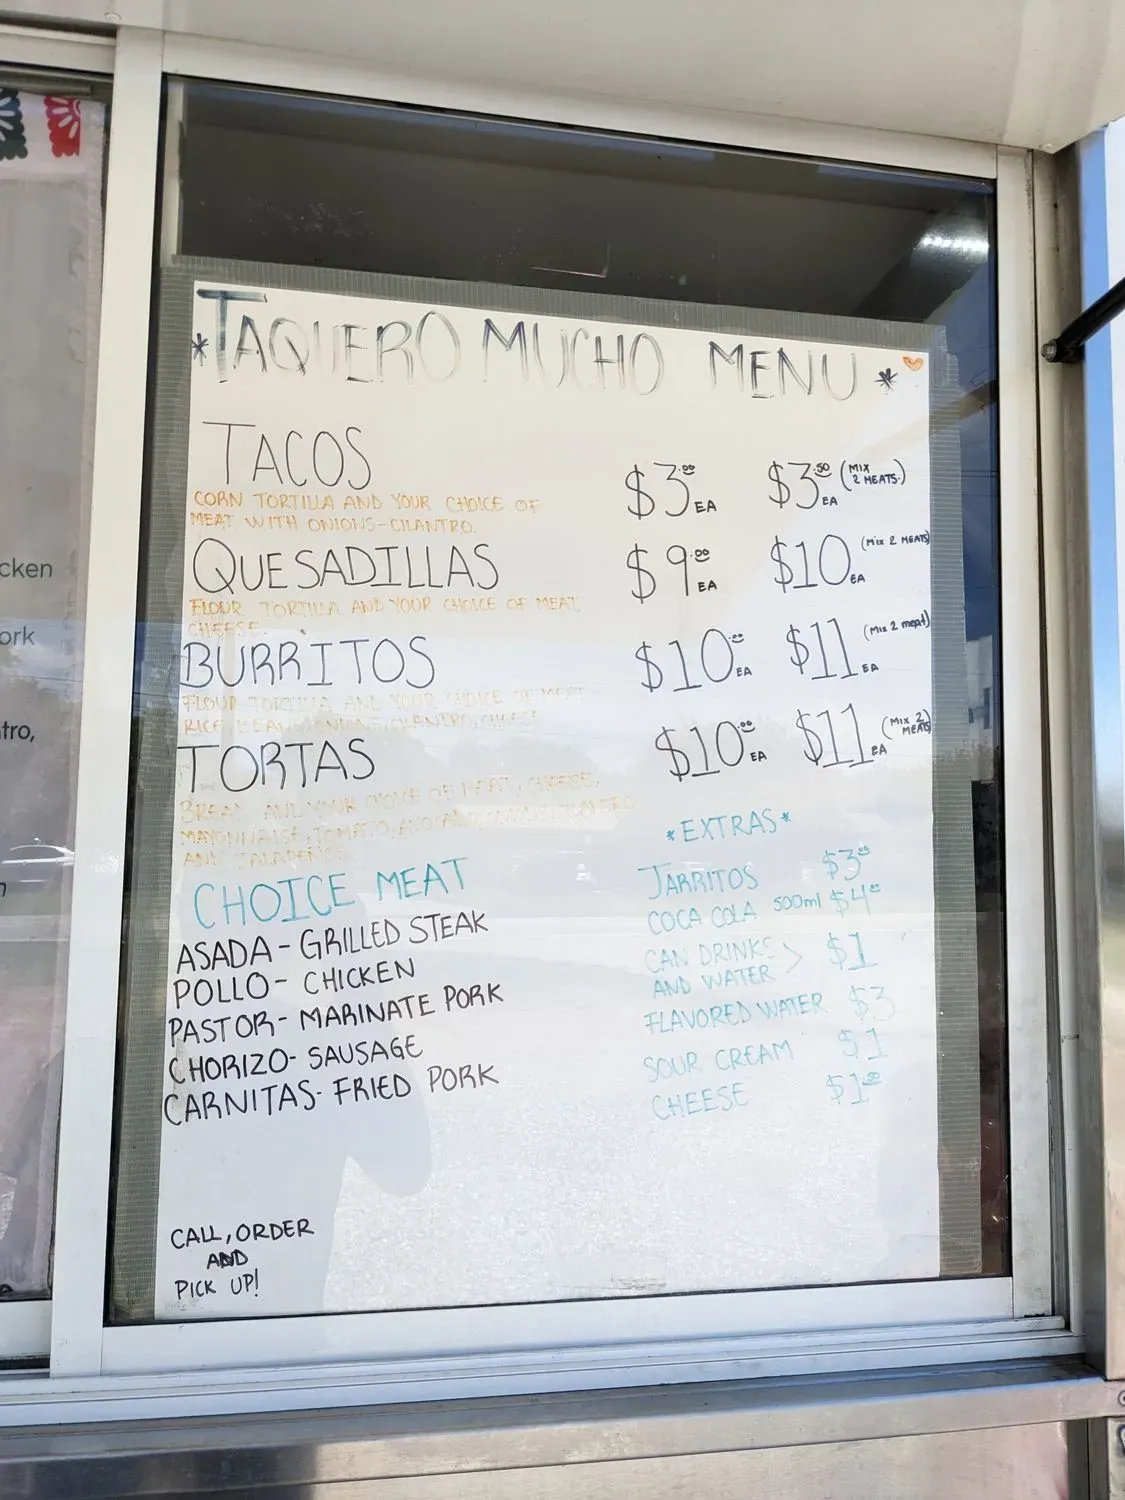 *TAQUERO MUCHO MENU*
TACOS $3.00 EA $3.50 EA (MIX 2 MEATS.)
CORN TORTILLA AND YOUR CHOICE OF
MEAT WITH ONIONS-CILANTRO.
QUESADILLAS $9.00 EA $10 EA (MIX 2 MEATS)
FLOUR TORTILLA AND YOUR CHOICE OF MEAT,
CHEESE.
BURRITOS $10.00 EA $11 EA (MIX 2 meat)
FLOUR TORTILLA AND YOUR CHOICE OF MEAT
RICE, BEANS, ONIONS, CILANTRO, CHEESE
TORTAS $10.00 EA $11 EA (MIX 2 MEATS)
BREAD AND YOUR CHOICE OF MEAT, CHEESE,
MAYONNAISE, TOMATO, AVOCADO, CILANTRO
AND JALAPEÑOS.
CHOICE MEAT
ASADA- GRILLED STEAK
POLLO- CHICKEN
PASTOR- MARINATE PORK
CHORIZO- SAUSAGE
CARNITAS- FRIED PORK
*EXTRAS*
JARRITOS $3.00
COCA COLA 500ml $4.00
CAN DRINKS > $1
AND WATER
FLAVORED WATER $3
SOUR CREAM $1
CHEESE $1.50
CALL, ORDER
AND
PICK UP!
cken
ork
tro,